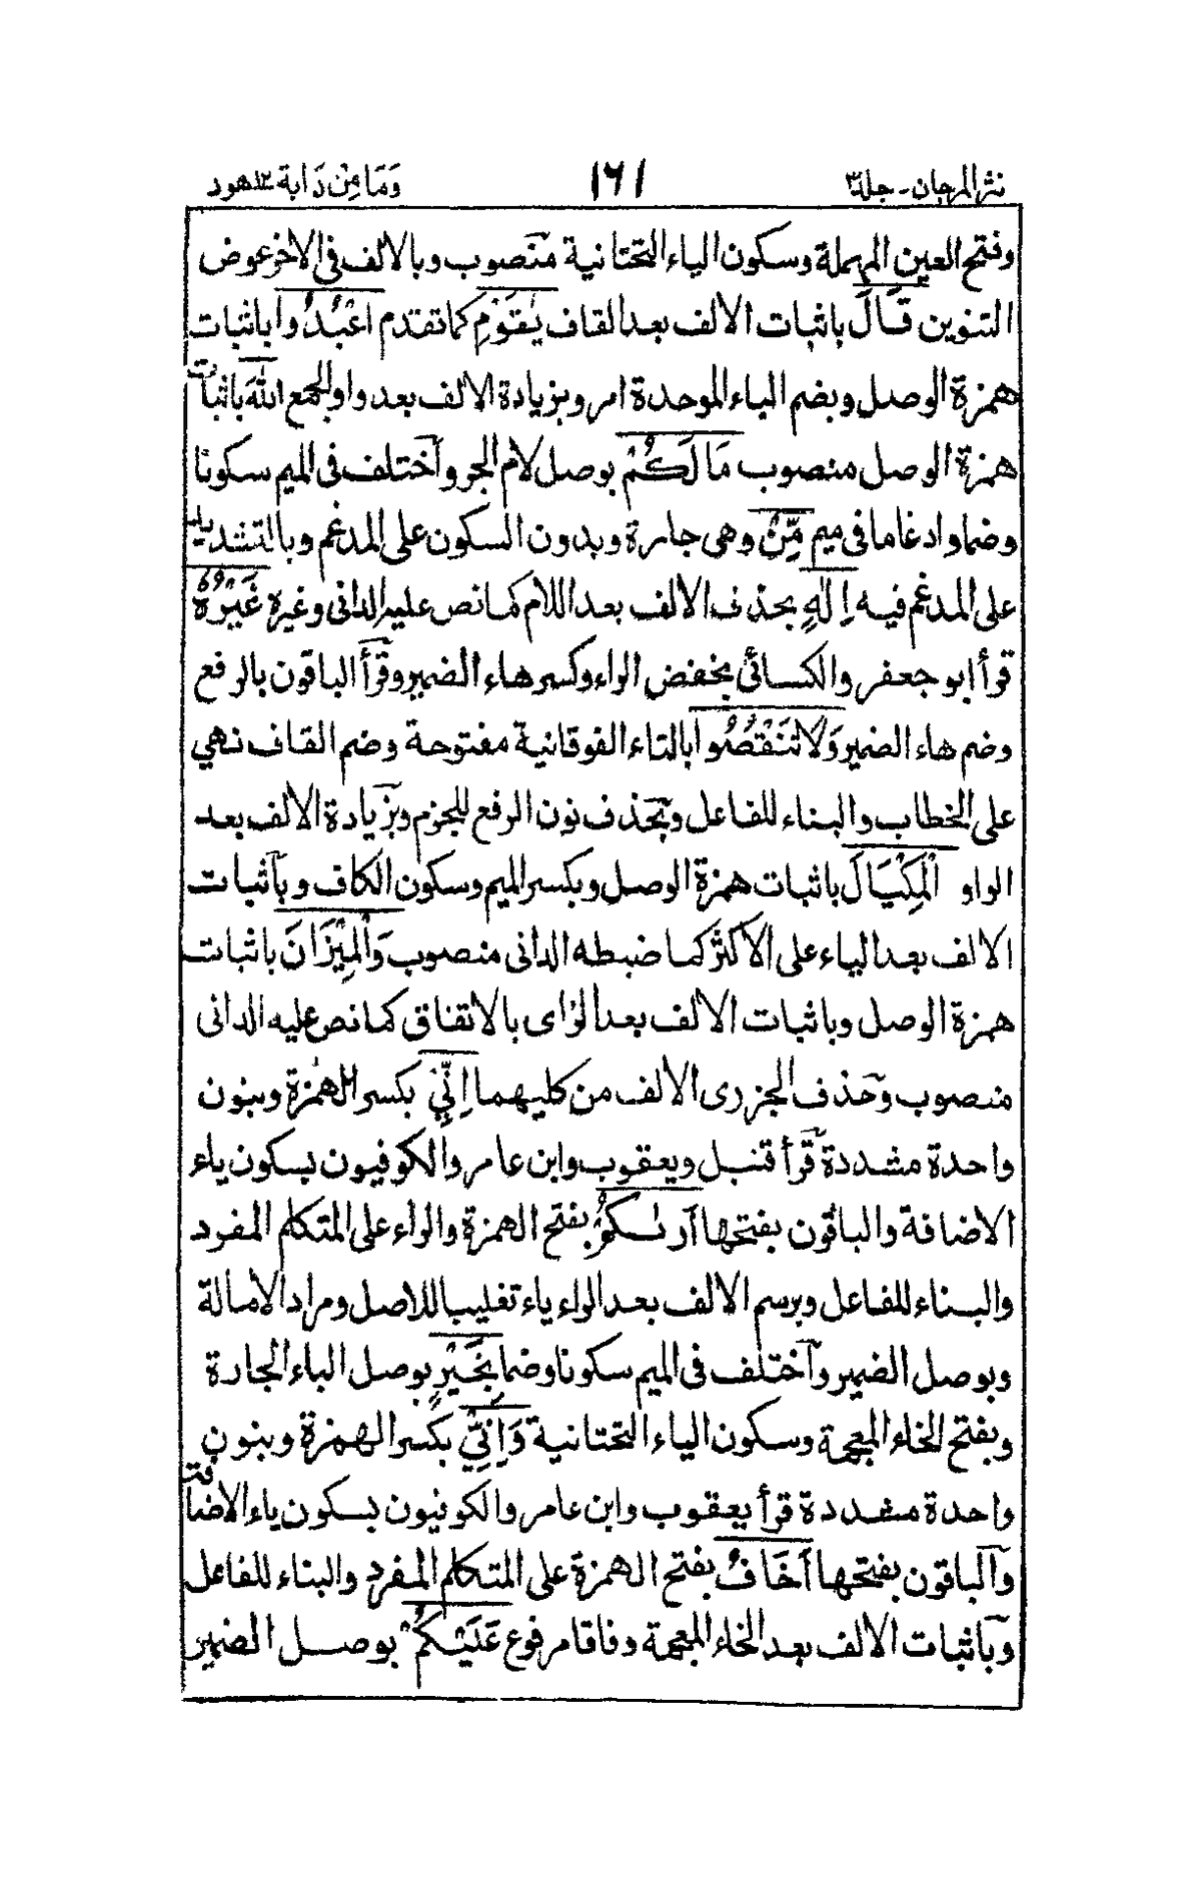 نثر المرجان - جلد٣
١٦١
وَمَا مِنْ دَابة ١٢ هود
وفتح العين المهملة وسكون الياء التحتانية منصوب وبالالف فى الاخر عوض
التنوين قَالَ باثبات الالف بعد القاف يٰقَوْمِ كما تقدم اعْبُدُوا باثبات
همزة الوصل وبضم الباء الموحدة امر وبزيادة الالف بعد واو الجمع اللّٰهَ باثبات
همزة الوصل منصوب مَا لَكُمْ بوصل لام الجر وآختلف فى الميم سكونا
وضما وادغاما فى ميم مِّنْ وهى جارة وبدون السكون على المدغم وبالتشديد
على المدغم فيه اِلٰهٍ بحذف الالف بعد اللام كما نص عليه الدانى وغيره غَيْرُهٗ
قرأ ابو جعفر والكسائى بخفض الراء وكسر هاء الضمير وقرأ الباقون بالرفع
وضم هاء الضمير وَلَا تَنْقُصُوا بالتاء الفوقانية مفتوحة وضم القاف نهي
على الخطاب والبناء للفاعل وبحذف نون الرفع للجزم وبزيادة الالف بعد
الواو الْمِكْيَالَ باثبات همزة الوصل وبكسر الميم وسكون الكاف وبآثبات
الالف بعد الياء على الاكثر كما ضبطه الدانى منصوب وَالْمِيْزَانَ باثبات
همزة الوصل وباثبات الالف بعد الزاى بالاتفاق كما نص عليه الدانى
منصوب وحذف الجزرى الالف من كليهما اِنِّيْ بكسر الهمزة وبنون
واحدة مشددة قرأ قنبل ويعقوب وابن عامر والكوفيون بسكون ياء
الاضافة والباقون بفتحها اَرٰىكُمْ بفتح الهمزة والراء على المتكلم المفرد
والبناء للفاعل وبرسم الالف بعد الراء ياء تغليبا للاصل ومراد الامالة
وبوصل الضمير وآختلف فى الميم سكونا وضما بِخَيْرٍ بوصل الباء الجارة
وبفتح الخاء المعجمة وسكون الياء التحتانية وَاِنِّيْ بكسر الهمزة وبنون
واحدة مشددة قرأ يعقوب وابن عامر والكوفيون بسكون ياء الاضافة
وآلباقون بفتحها اَخَافُ بفتح الهمزة على المتكلم المفرد والبناء للفاعل
وبآثبات الالف بعد الخاء المعجمة وفاقا مرفوع عَلَيْكُمْ بوصل الضمير